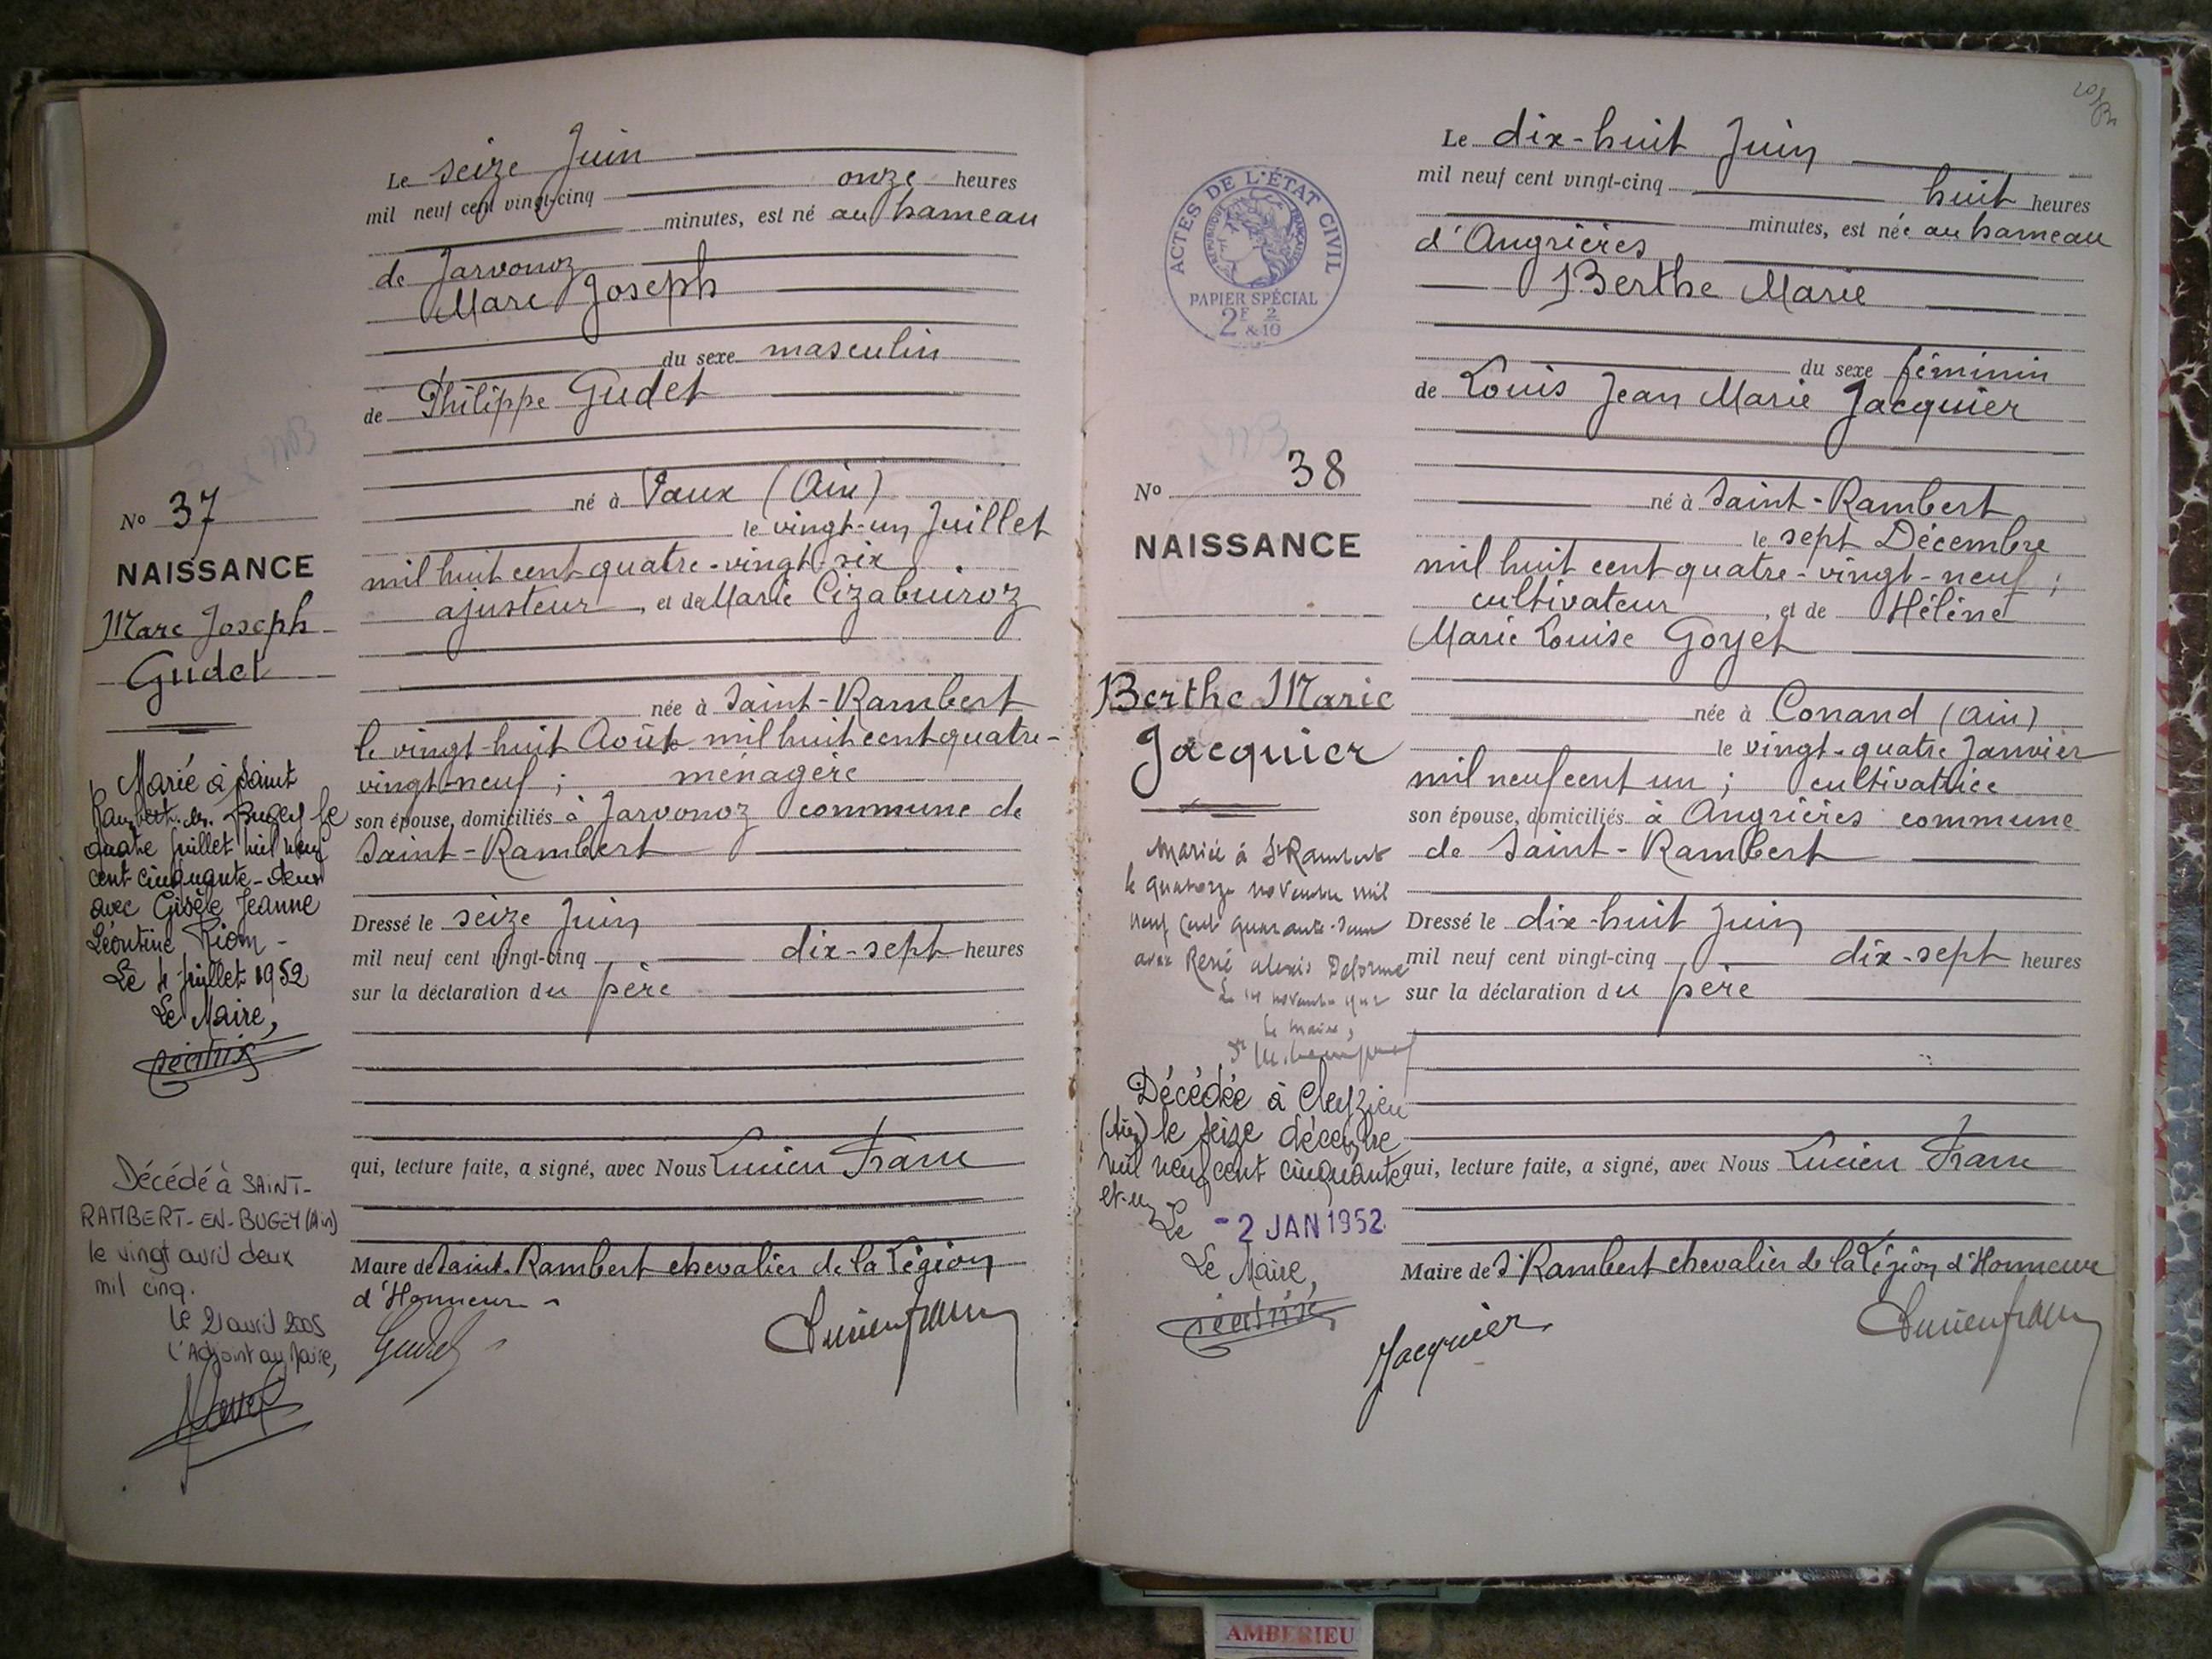 Le seize Juin
mil neuf cent vingt-cinq onze heures
minutes, est né au hameau
de Jarvonoz
Marc Joseph
du sexe masculin
de Philippe Gudet
né à Vaux (Ain)
le vingt-un Juillet
mil huit cent quatre-vingt-six
ajusteur, et de Marie Cizabuiroz
née à Saint-Rambert
le vingt-huit Août mil huit cent quatre-
vingt-neuf ; ménagère
son épouse, domiciliés à Jarvonoz commune de
Saint-Rambert
Dressé le seize Juin
mil neuf cent vingt-cinq dix-sept heures
sur la déclaration du père
qui, lecture faite, a signé, avec Nous Lucien Franc
Maire de Saint-Rambert chevalier de la Légion
d'Honneur
Gudet
Lucien Franc
No 37
NAISSANCE
Marc Joseph
Gudet
Marié à Saint
Rambert-en-Bugey le
quatre juillet mil neuf
cent cinquante-deux
avec Gisèle Jeanne
Léontine Riom -
Le 4 juillet 1952
Le Maire,
Décédé à SAINT-
RAMBERT-EN-BUGEY (Ain)
le vingt avril deux
mil cinq.
le 21 avril 2005
L'Adjoint au Maire,
Le dix-huit Juin
mil neuf cent vingt-cinq huit heures
minutes, est née au hameau
d'Angrières
Berthe Marie
du sexe féminin
de Louis Jean Marie Jacquier
né à Saint-Rambert
le sept Décembre
mil huit cent quatre-vingt-neuf ;
cultivateur, et de Hélène
Marie Louise Goyet
née à Conand (Ain)
le vingt-quatre Janvier
mil neuf cent un ; cultivatrice
son épouse, domiciliés à Angrières commune
de Saint-Rambert
Dressé le dix-huit Juin
mil neuf cent vingt-cinq dix-sept heures
sur la déclaration du père
qui, lecture faite, a signé, avec Nous Lucien Franc
Maire de St Rambert chevalier de la Légion d'Honneur
Jacquier
Lucien Franc
ACTES DE L'ÉTAT CIVIL
RÉPUBLIQUE FRANÇAISE
PAPIER SPÉCIAL
2F & 2/10
No 38
NAISSANCE
Berthe Marie
Jacquier
Mariée à St Rambert
le quatorze novembre mil
neuf cent quarante-deux
avec René Alexis Delorme
Le 14 novembre 1942
Le Maire,
Décédée à Cleyzieu
(Ain) le seize décembre
mil neuf cent cinquante
et-un
Le -2 JAN 1952
Le Maire,
AMBERIEU